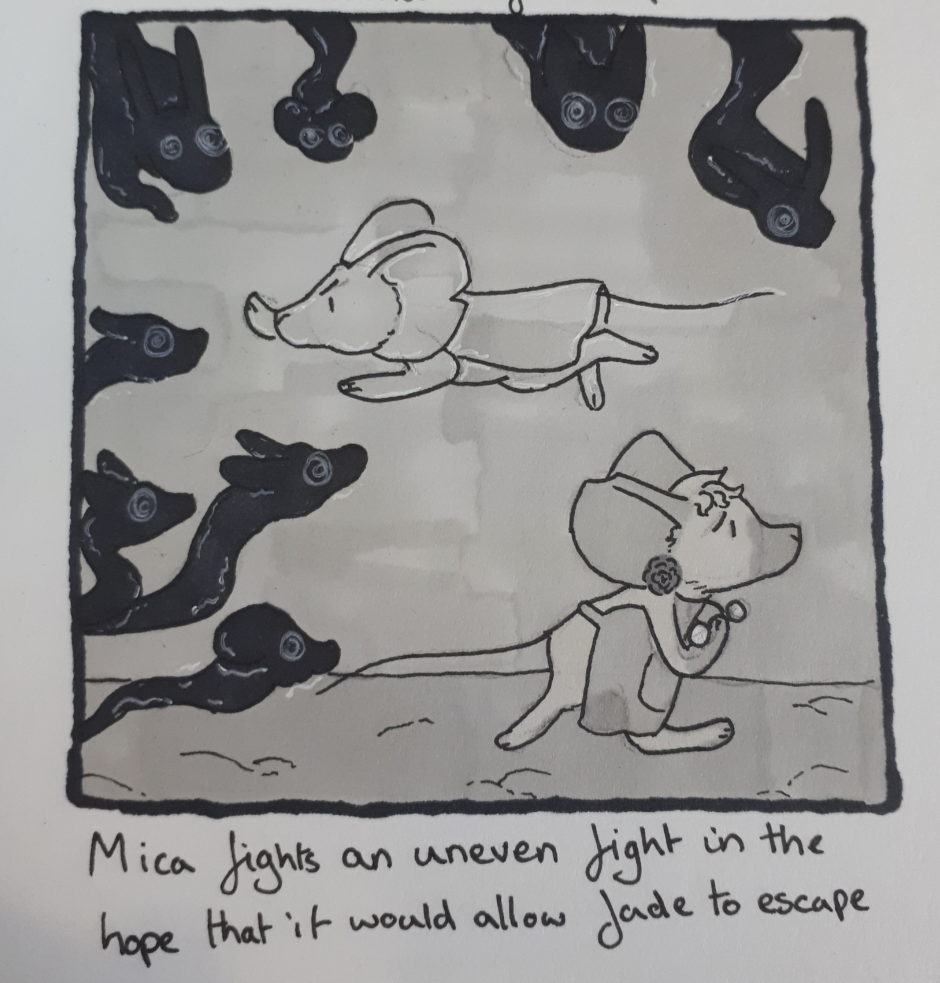 Mica fights an uneven fight in the
hope that it would allow Jade to escape